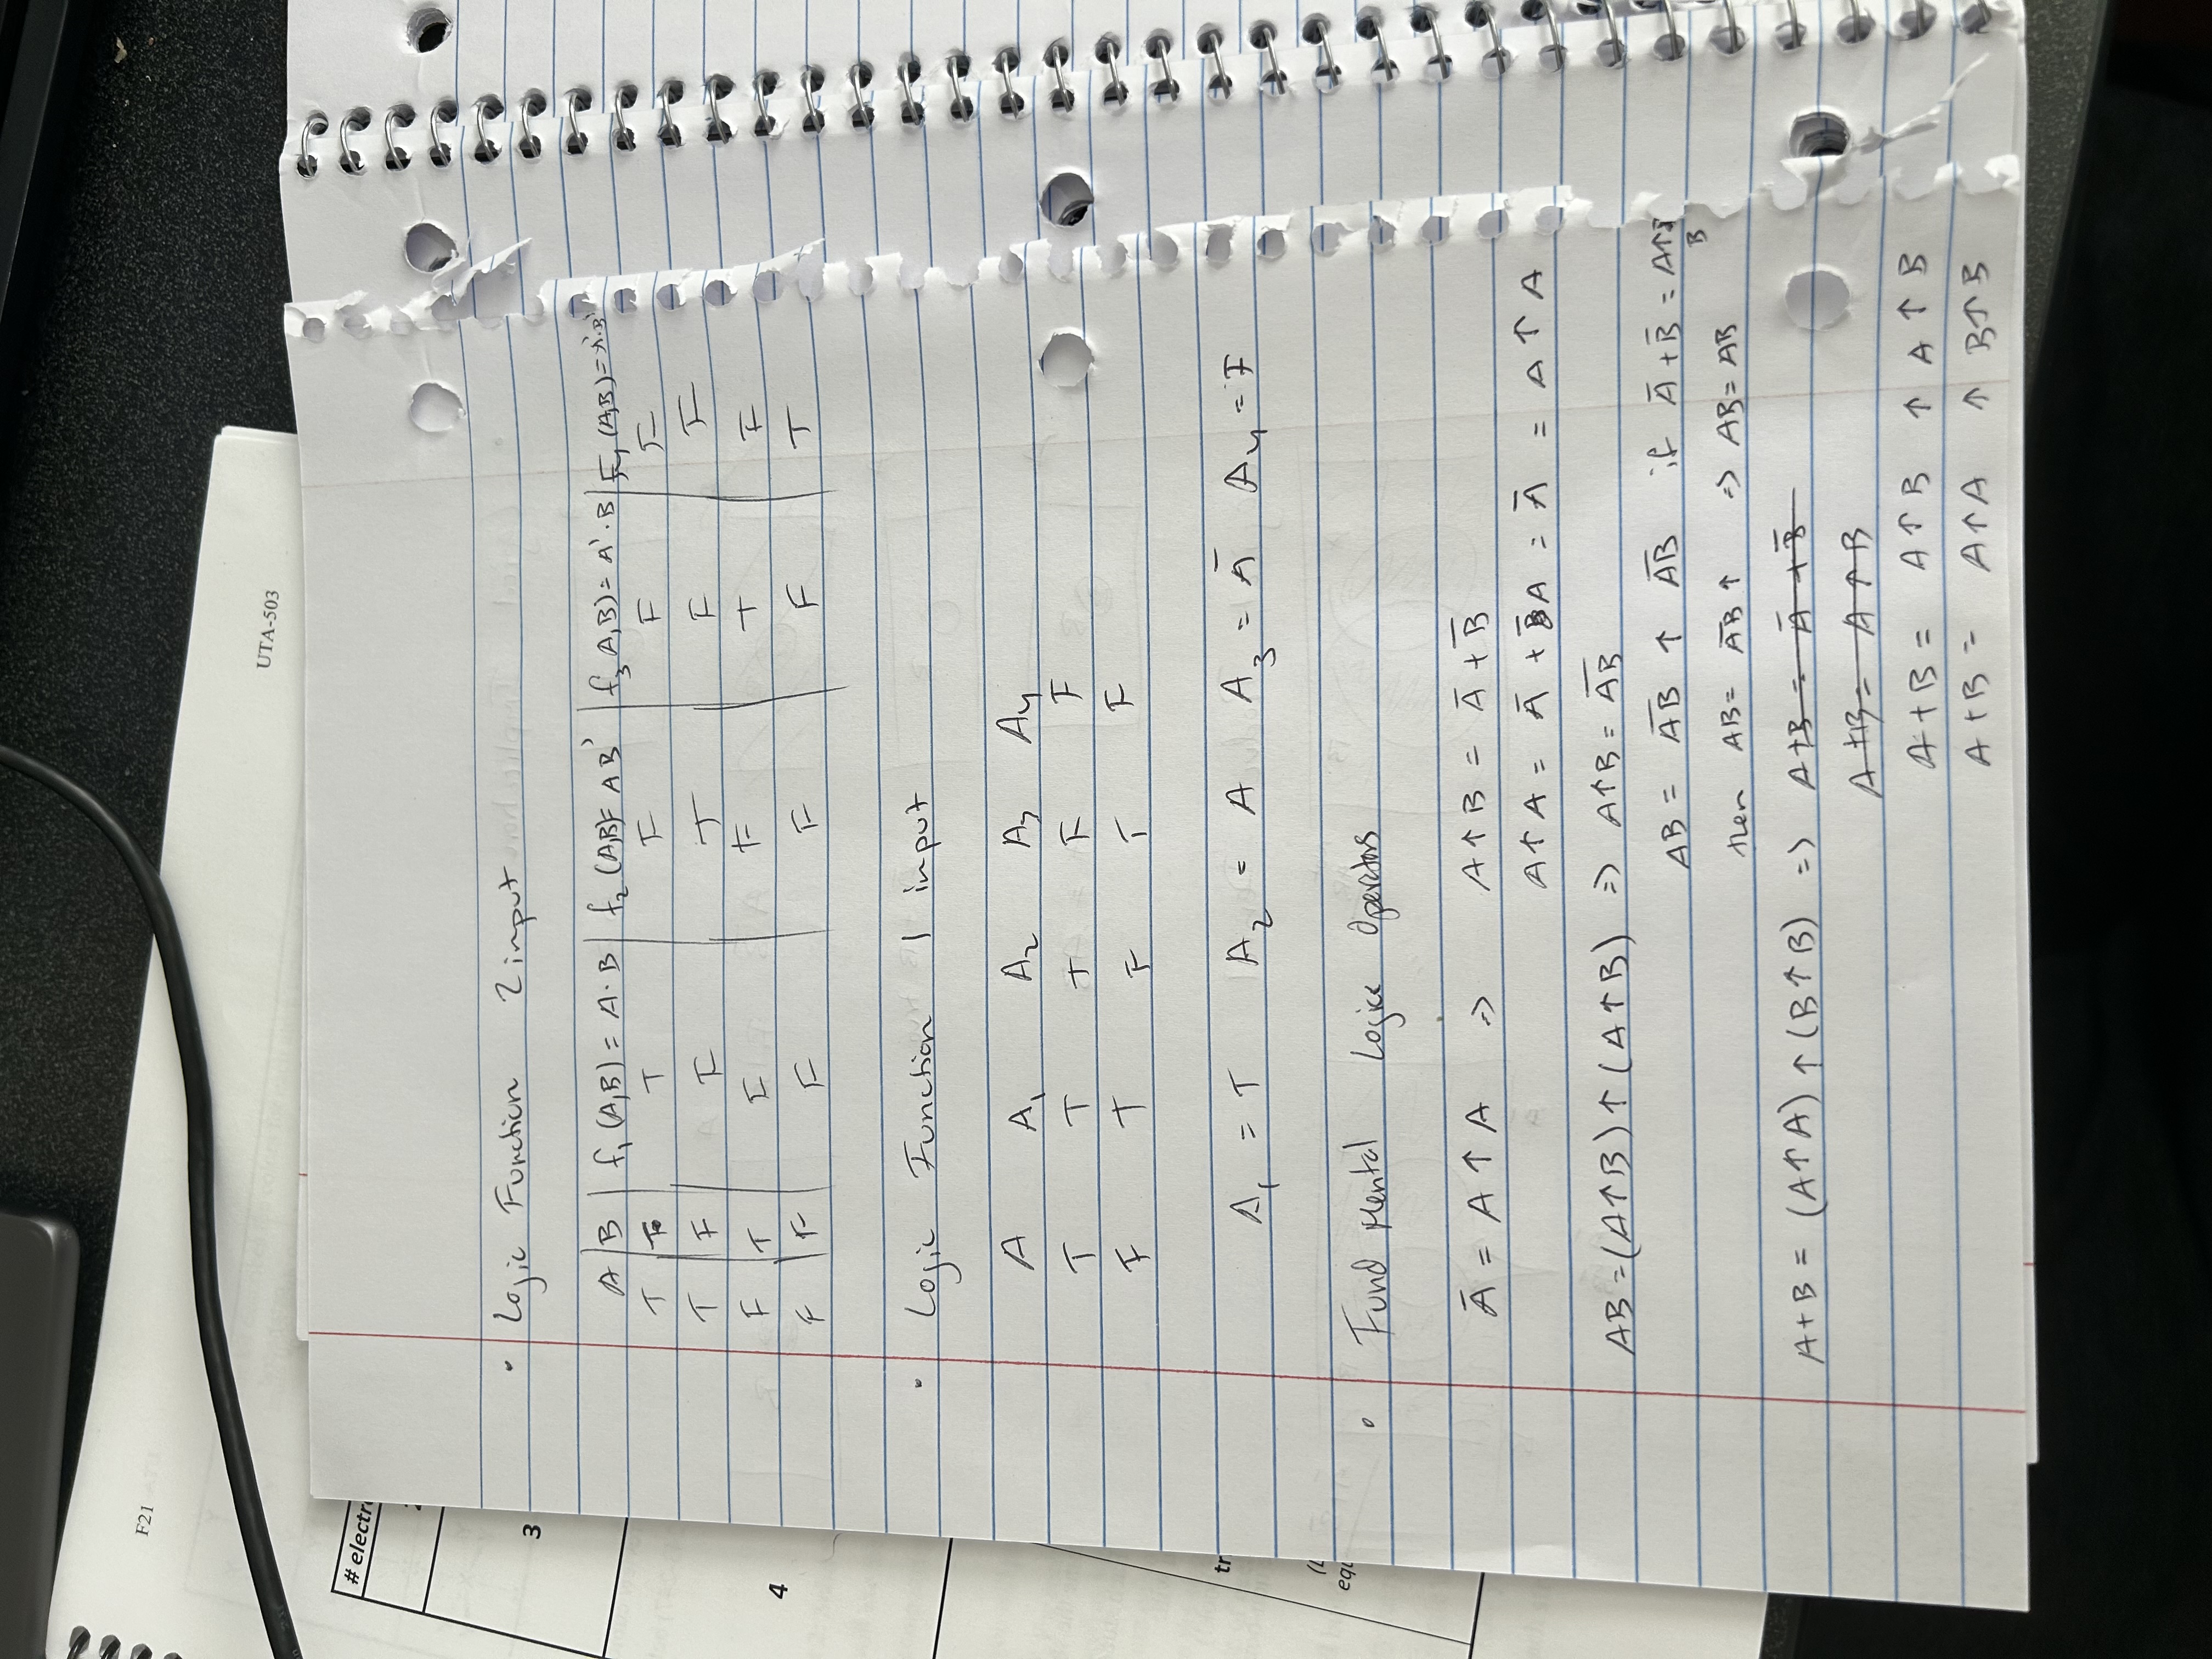 F21
UTA-503
# electr
3
4
tr
(L
equ
• Logic Function 2 input
A | B | f₁ (A,B) = A · B | f₂ (A,B)= A B' | f₃ A,B) = A' · B | F₄ (A,B) = A'·B'
T T T F F F
T F F T F F
F T F F T F
F F F F F T
• Logic Function 1 input
A A₁ A₂ A₃ A₄
T T T F F
F T F T F
A₁ = T A₂ = A A₃ = Ā A₄ = F
• Fund Mental Logice Operators
Ā = A ↑ A => A ↑ B = Ā + B̄
A ↑ A = Ā + A = Ā = A ↑ A
AB = (A↑B) ↑ (A↑B) => A↑B = A̅B̅
AB = A̅B̅ ↑ A̅B̅ if Ā + B̄ = A↑B
B
then AB = A̅B̅ ↑ => AB = AB
A+B = (A↑A) ↑ (B↑B) => A+B = Ā + B̄
A+B = A ↑ B
A+B = A↑B ↑ A↑B
A+B = A↑A ↑ B↑B